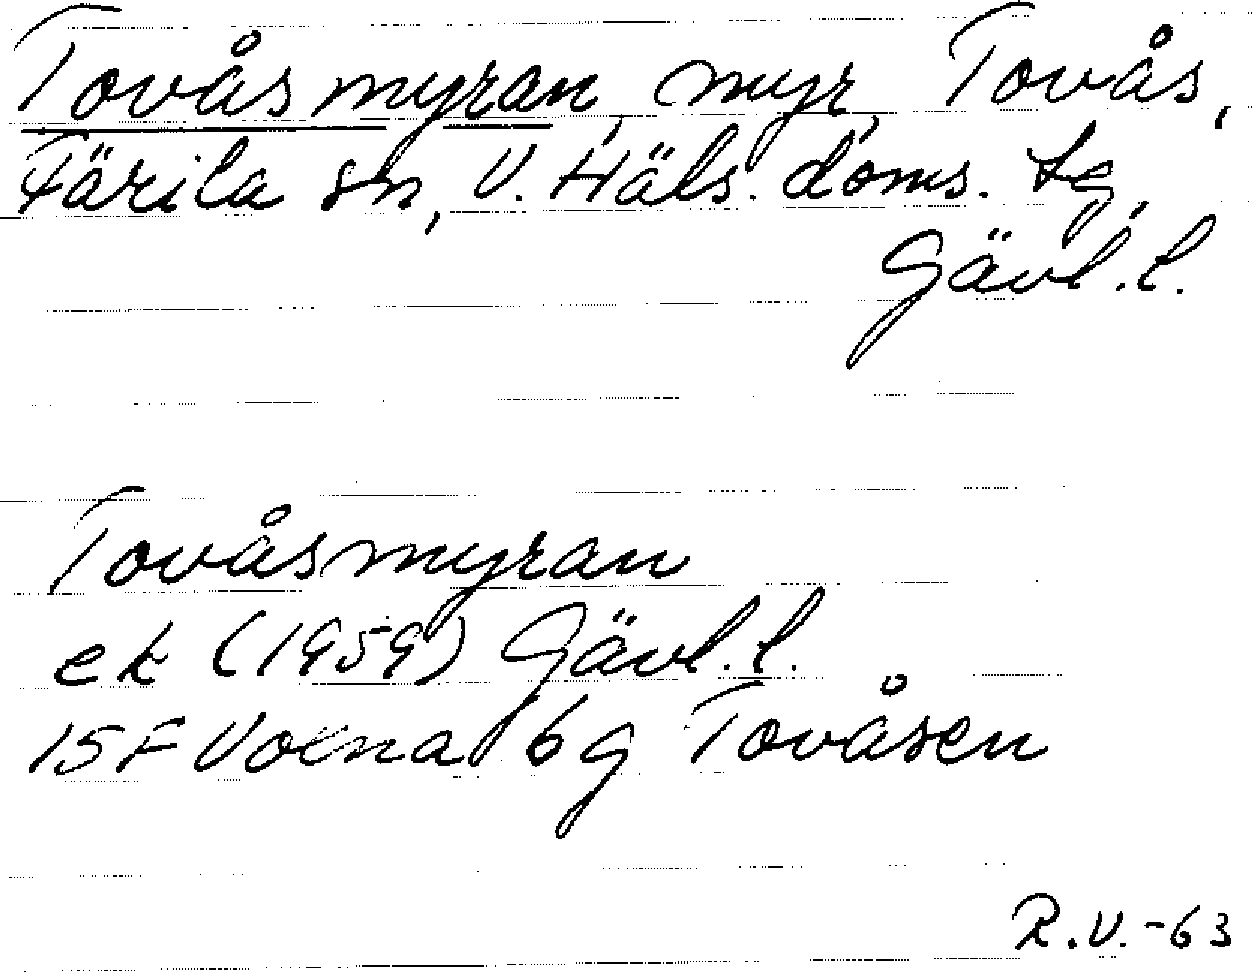 Tovåsmyran, myr, Tovås,
Färila sn, V. Häls. doms. tg,
Gävl. l.
Tovåsmyran
ek (1959) Gävl. l.
15F Voxna 6g Tovåsen
R.V.-63